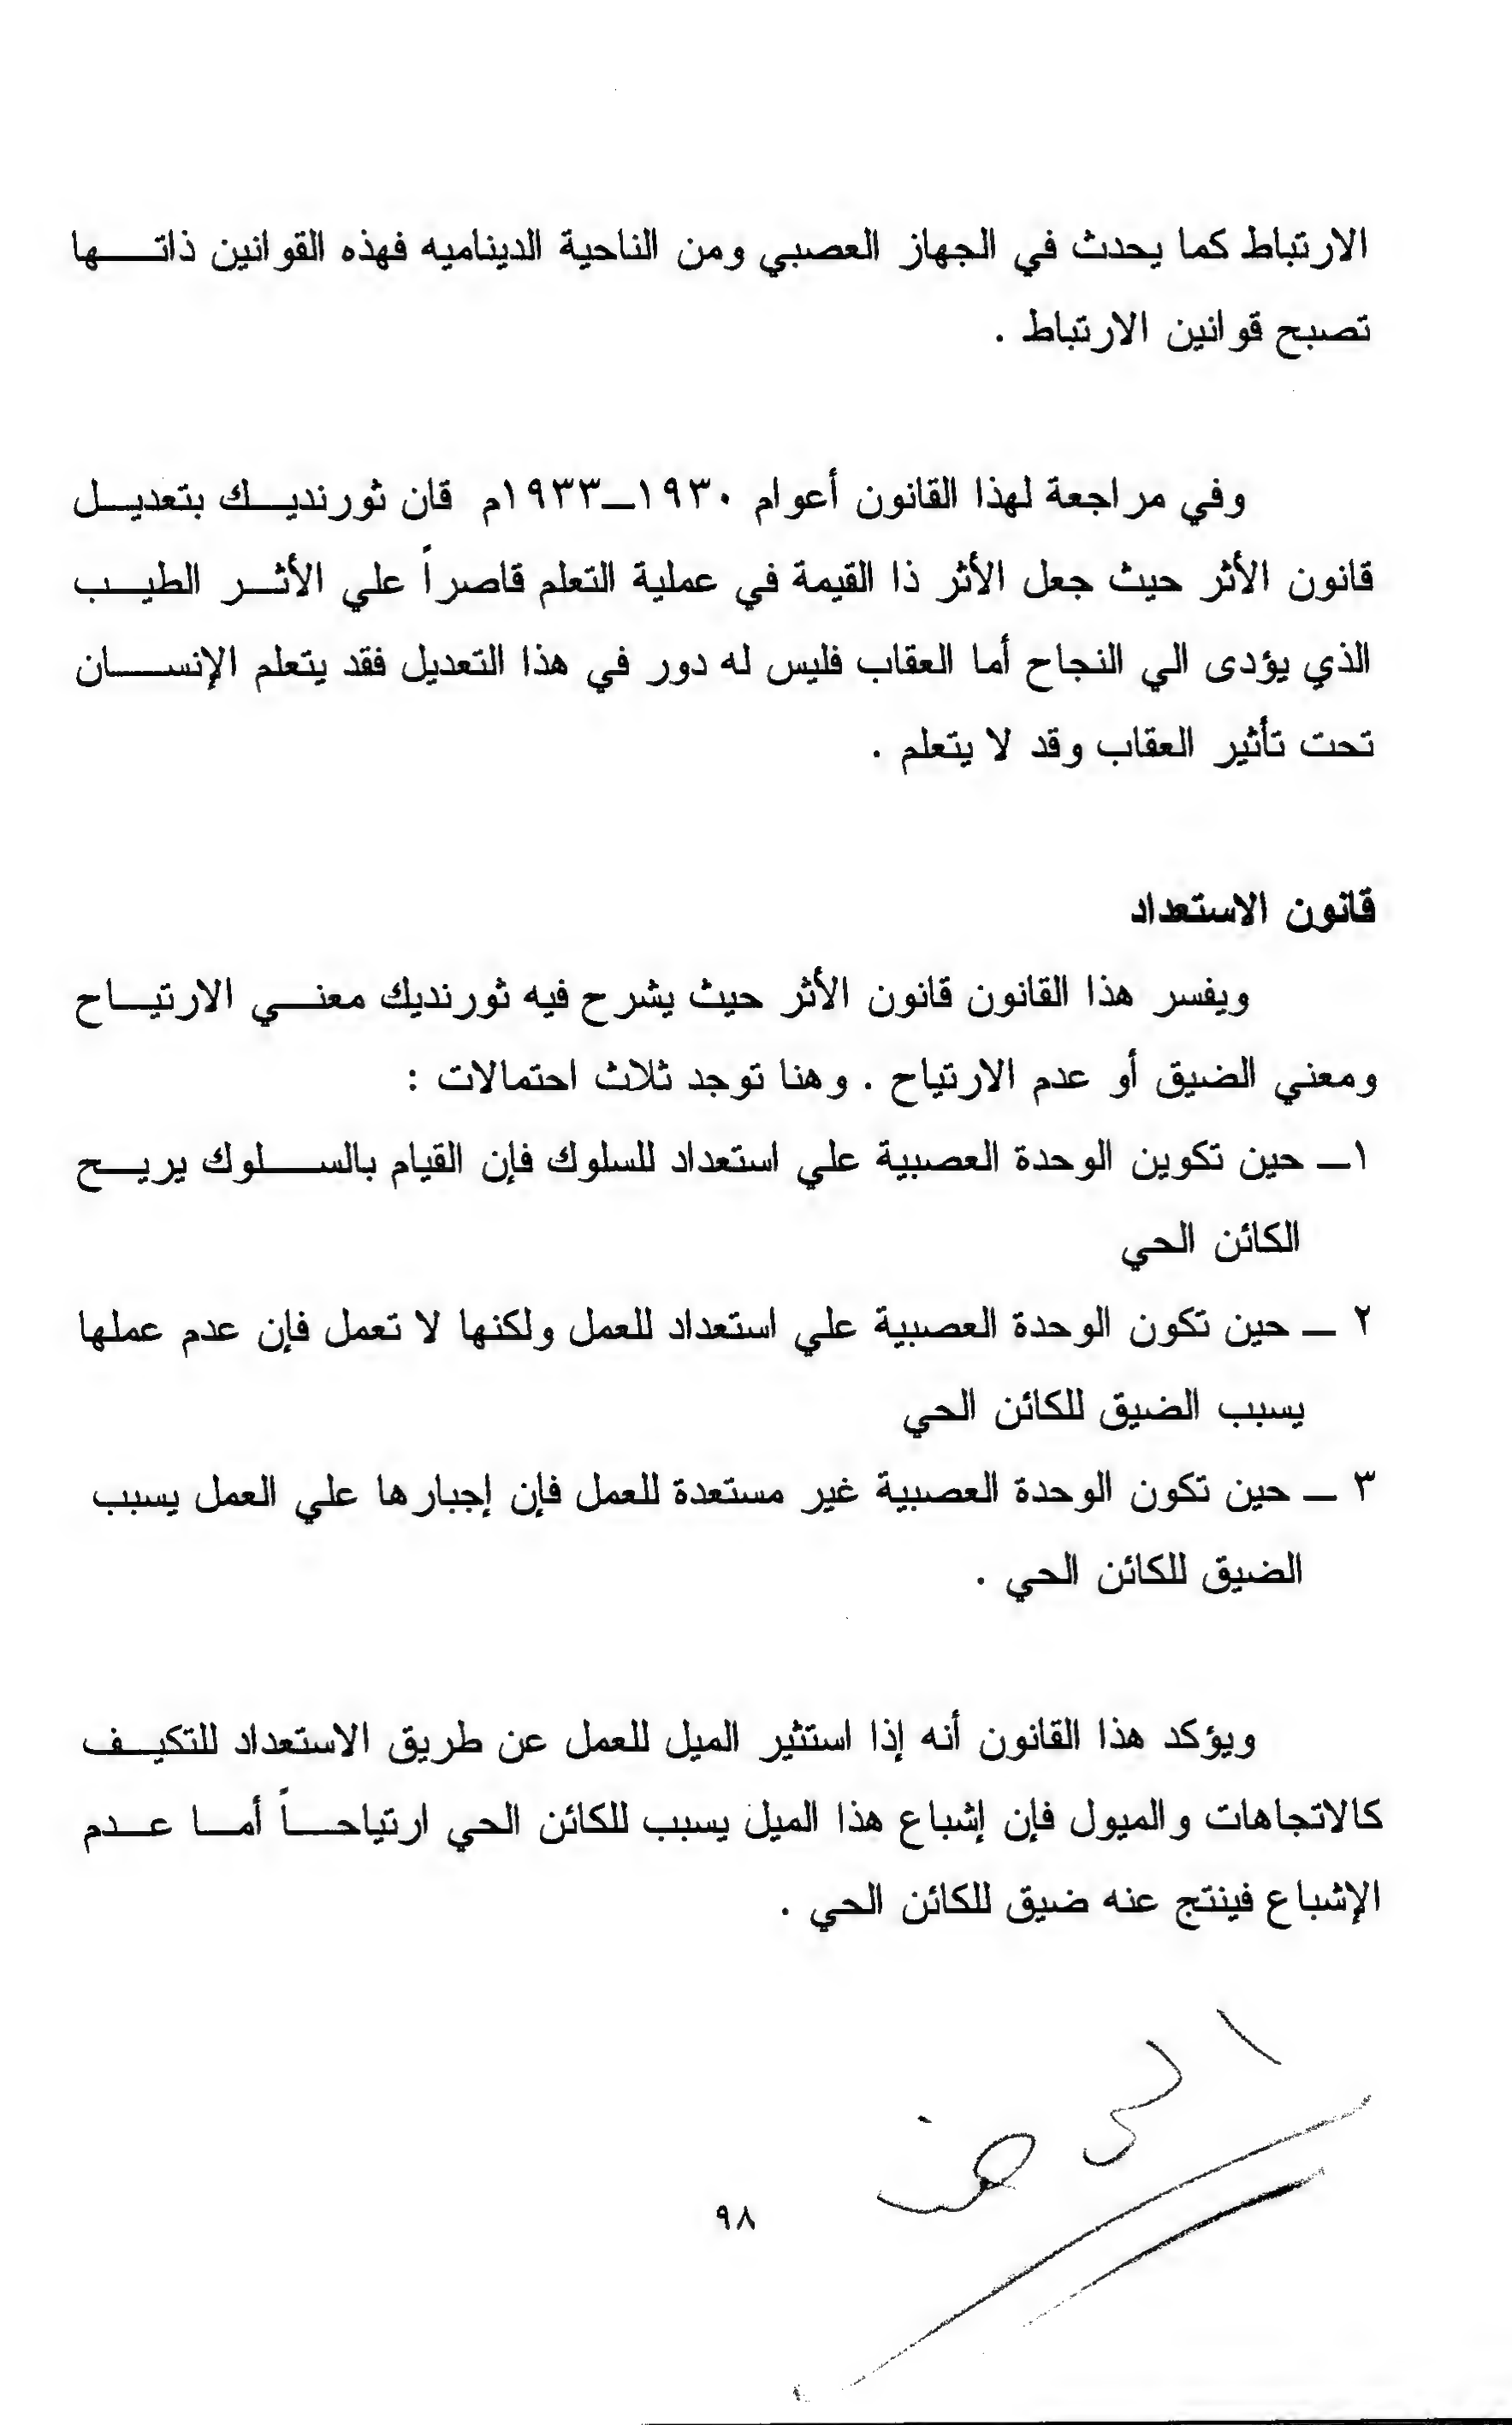 الارتباط كما يحدث في الجهاز العصبي ومن الناحية الديناميه فهذه القوانين ذاتها
تصبح قوانين الارتباط .
وفي مراجعة لهذا القانون أعوام ١٩٣٠ــ١٩٣٣م قان ثورنديك بتعديل
قانون الأثر حيث جعل الأثر ذا القيمة في عملية التعلم قاصراً علي الأثر الطيب
الذي يؤدى الي النجاح أما العقاب فليس له دور في هذا التعديل فقد يتعلم الإنسان
تحت تأثير العقاب وقد لا يتعلم .
قانون الاستعداد
ويفسر هذا القانون قانون الأثر حيث يشرح فيه ثورنديك معني الارتياح
ومعني الضيق أو عدم الارتياح . وهنا توجد ثلاث احتمالات :
١ــ حين تكوين الوحدة العصبية علي استعداد للسلوك فإن القيام بالسلوك يريح
الكائن الحي
٢ ــ حين تكون الوحدة العصبية علي استعداد للعمل ولكنها لا تعمل فإن عدم عملها
يسبب الضيق للكائن الحي
٣ ــ حين تكون الوحدة العصبية غير مستعدة للعمل فإن إجبارها علي العمل يسبب
الضيق للكائن الحي .
ويؤكد هذا القانون أنه إذا استثير الميل للعمل عن طريق الاستعداد للتكيف
كالاتجاهات والميول فإن إشباع هذا الميل يسبب للكائن الحي ارتياحاً أما عدم
الإشباع فينتج عنه ضيق للكائن الحي .
الى هنا
٩٨